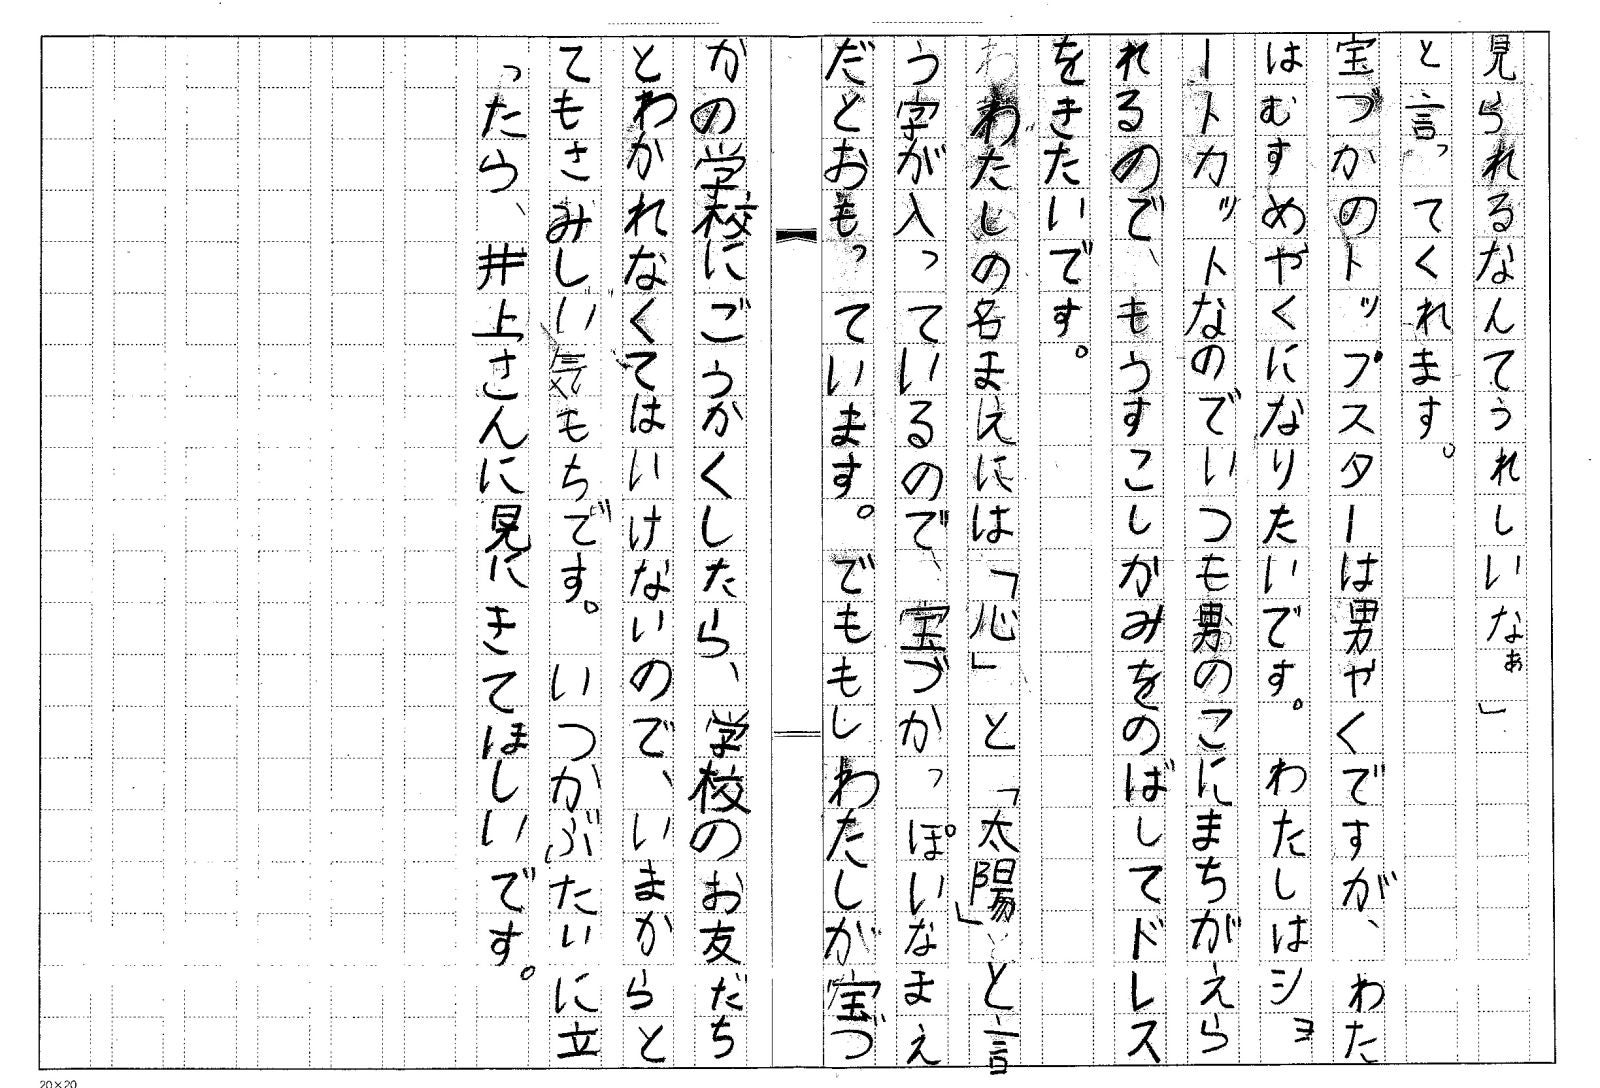 見られるなんてうれしいなぁ」
と言ってくれます。
宝づかのトップスターは男やくですが、わた
はむすめやくになりたいです。わたしはショ
ートカットなのでいつも男のこにまちがえら
れるので、もうすこしかみをのばしてドレス
をきたいです。
わたしの名まえには「心」と「太陽」と言
う字が入っているので、宝づかっぽいなまえ
だとおもっています。でももしわたしが宝づ
かの学校にごうかくしたら、学校のお友だち
とわかれなくてはいけないので、いまからと
てもさみしい気もちです。いつかぶたいに立
ったら、井上さんに見にきてほしいです。
20×20